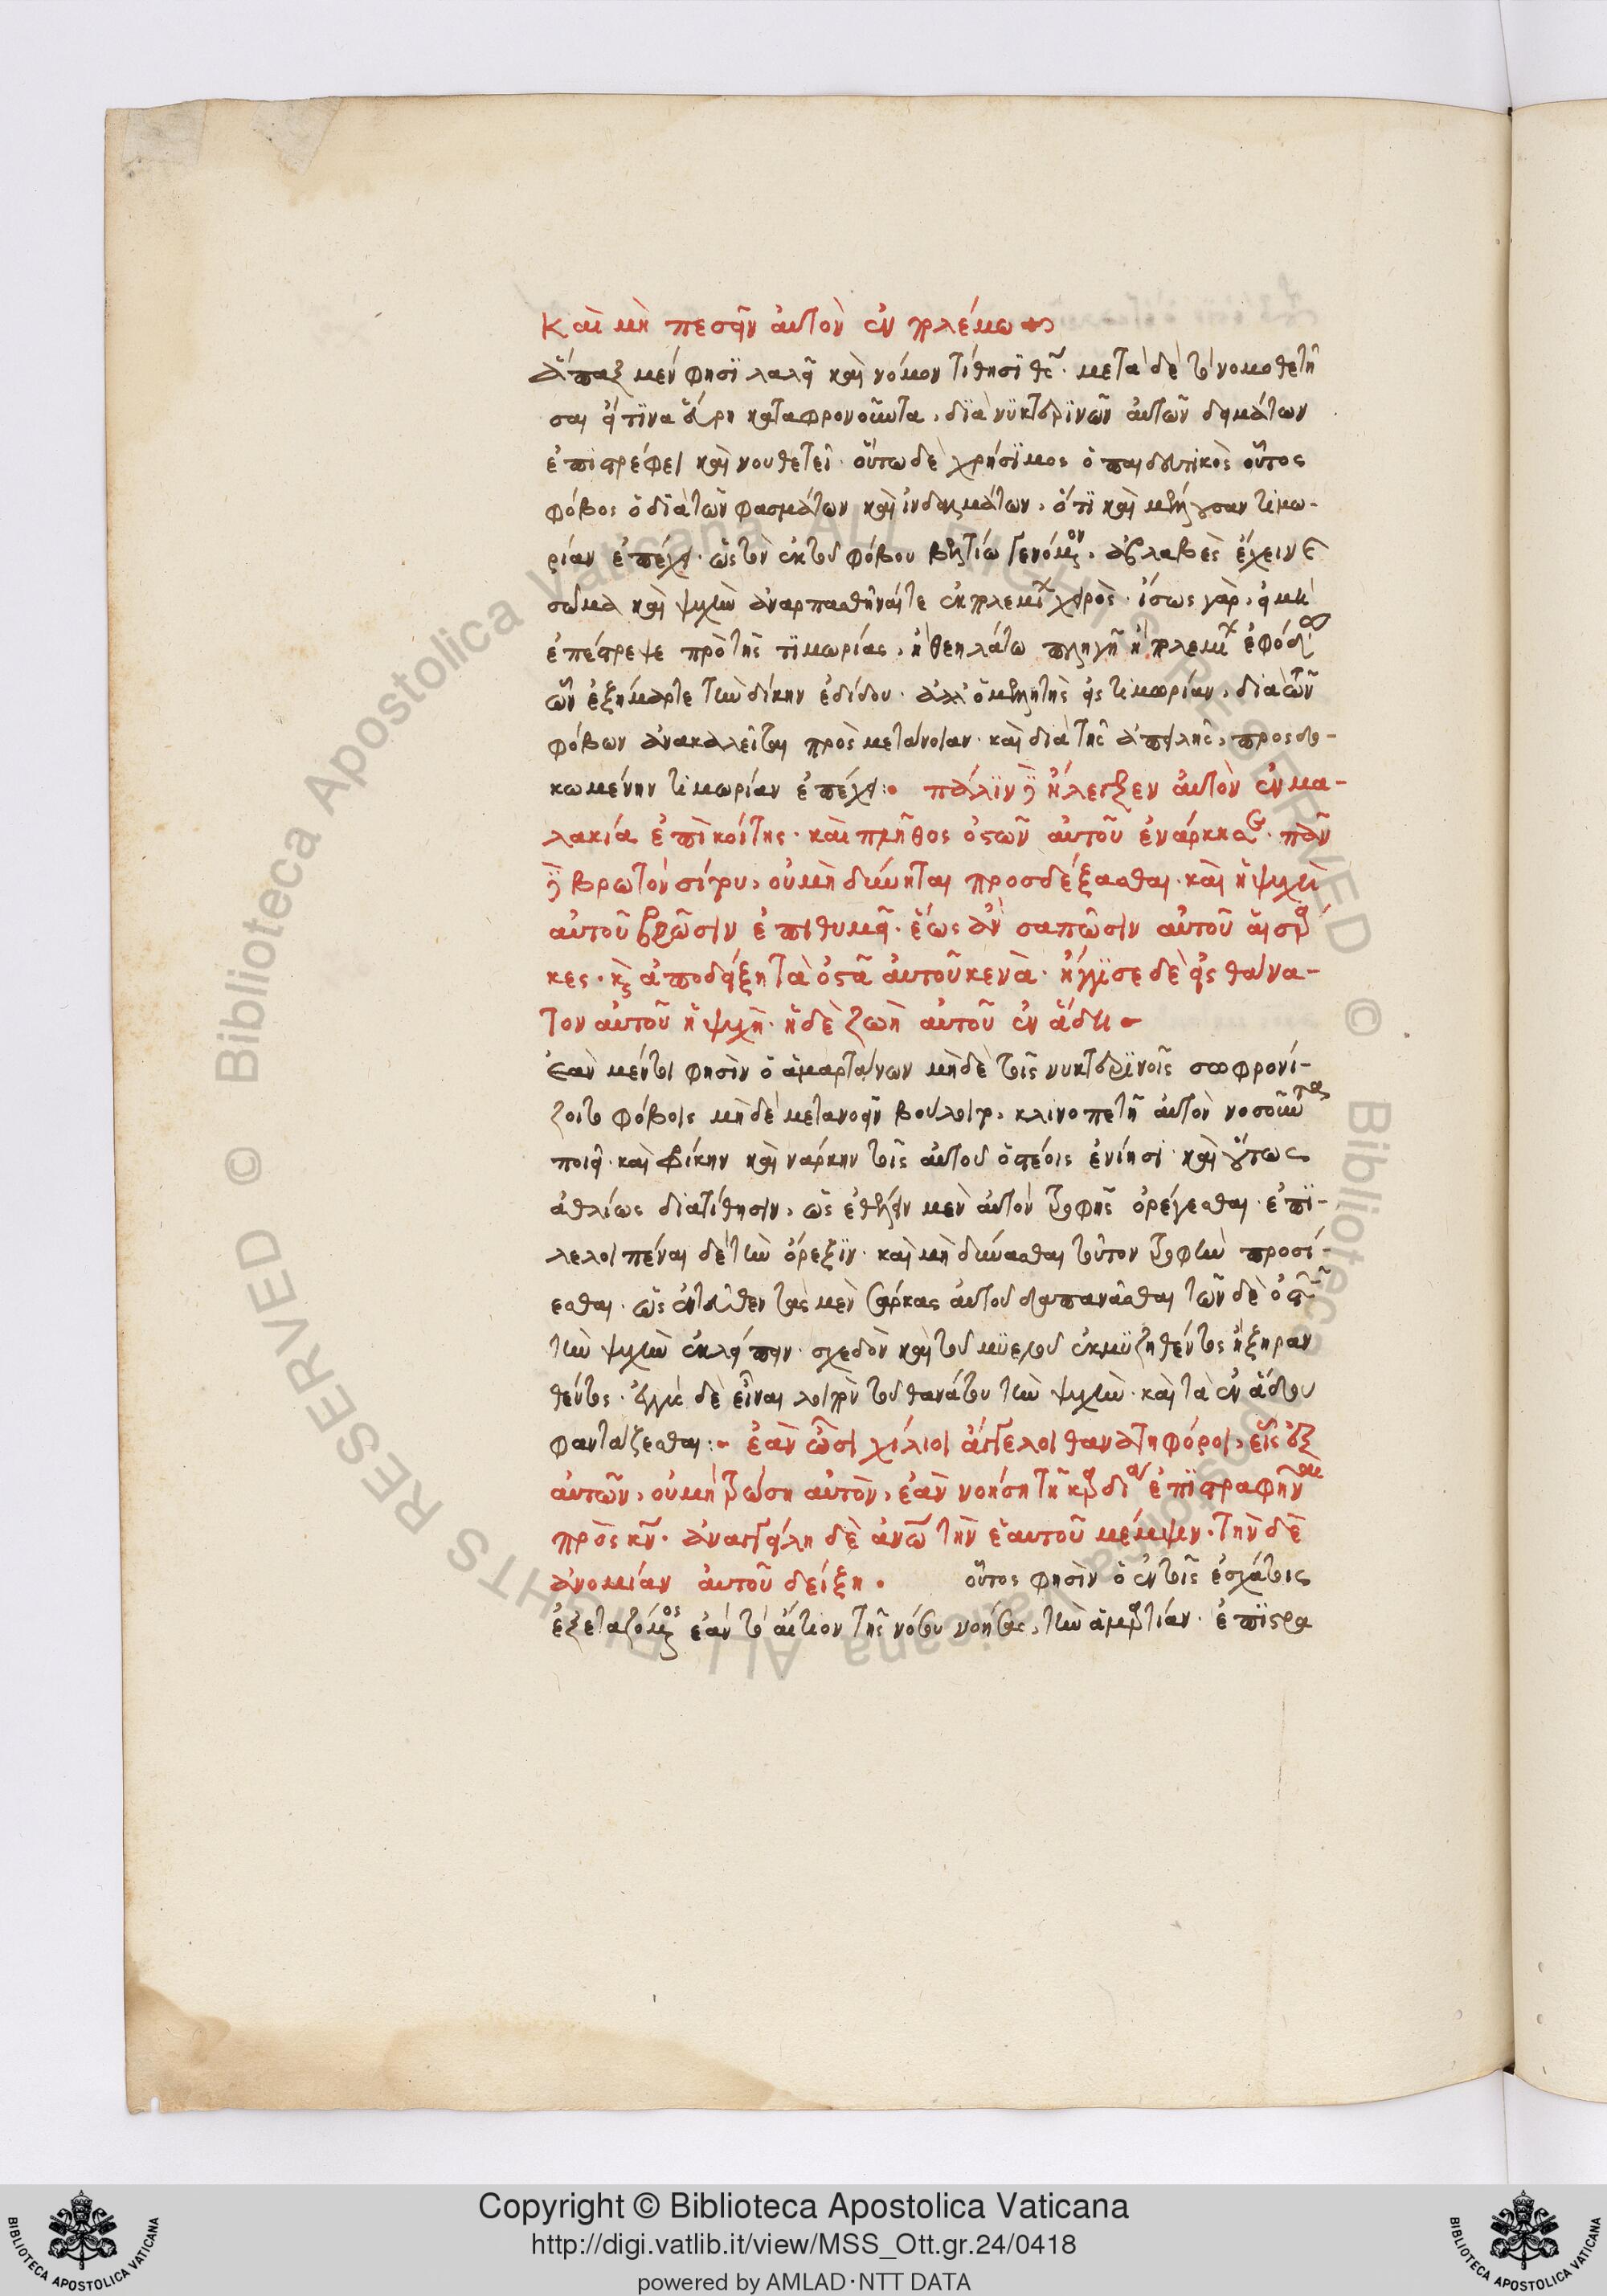 Καὶ μὴ πεσεῖν αὐτὸν ἐν πολέμω
ἅπαξ μέν φησϊ λαλεῖ καὶ νόμον τίθησϊ θς. μετὰ δὲ τὸ νομοθετῆ
σαι εἴ τϊνα εὕρη καταφρονοῦντα, δϊὰ νϋκτερϊνῶν αὐτῶν δειμάτων
ἐπϊστρέφει καὶ νουθετεῖ. οὕτω δὲ χρήσϊμος ὁ παιδευτϊκὸς οὗτος
φόβος ὁ δϊὰ τῶν φασμάτων καὶ ἰνδαλμάτων, ὅτϊ καὶ μέλλουσαν τιμω-
ρίαν ἐπέχει. ὡς τὸν ἐκ τοῦ φόβου βελτίω γενόμενον, ἀβλαβὲς ἔχειν τὸ
σῶμα καὶ ψυχὴν ἀναρπασθῆναί τε ἐκ πολεμίου χειρός. ἴσως γὰρ, εἰ μὴ
ἐπέστρεψε πρὸ τῆς τϊμωρίας, ἢ θεηλάτω πληγῆ ἢ πολεμίων ἐφόδω
ὧν ἐξήμαρτε τὴν δίκην ἐδίδου. ἀλλ' ὁ μέλλων τῆς εἰς τιμωρίαν, διὰ τῶν
φόβων ἀνακαλεῖται πρὸς μετάνοιαν. καὶ διὰ τῆς ἀπειλῆς, προσδο-
κωμένην τιμωρίαν ἐπέχει: πάλϊν δὲ ἤλεγξεν αὐτὸν ἐν μα-
λακία ἐπὶ κοίτης. καὶ πλῆθος ὀστῶν αὐτοῦ ἐνάρκησε. πᾶν
δὲ βρωτὸν σίτου, οὐ μὴ δύνηται προσδέξασθαι. καὶ ἡ ψυχὴ
αὐτοῦ βρῶσιν ἐπιθυμεῖ. ἕως ἂν σαπῶσιν αὐτοῦ αἱ σάρ
κες. κ ἀποδείξη τὰ ὀστᾶ αὐτοῦ κενὰ. ἤγγϊσε δὲ εἰς θάνα-
τον αὐτοῦ ἡ ψυχὴ. ἡ δὲ ζωὴ αὐτοῦ ἐν ἅδη
Ἐὰν μέντοι φησὶν ὁ ἁμαρτάνων μηδὲ τοῖς νυκτερϊνοῖς σωφρονί-
ζοιτο φόβοις μηδὲ μετανοεῖν βούλοιτο, κλινοπετῆ αὐτὸν νοσοῦντα
ποιεῖ. καὶ φρίκην καὶ νάρκην τοῖς αὐτοῦ ὀστέοις ἐνίησι. καὶ οὕτως
ἀθλίως διατίθησιν, ὡς ἐθέλειν μὲν αὐτὸν τροφῆς ὀρέγεσθαι. ἐπϊ-
λελοιπέναι δὲ τὴν ὄρεξϊν. καὶ μὴ δύνασθαι τοῦτον τροφὴν προσί-
εσθαι. ὡς ἐντεῦθεν τὰς μὲν σάρκας αὐτοῦ δαπανᾶσθαι τῶν δὲ ὀστῶν
τὴν ψυχὴν ἐκλείπειν. σχεδὸν καὶ τοῦ μϋελοῦ ἐκμϋζηθέντος ἢ ξηραν
θέντος. ἐγγὺς δὲ εἶναι λοιπὸν τοῦ θανάτου τὴν ψυχὴν. καὶ τὰ ἐν ἅδου
φαντάζεσθαι: ἐὰν ὦσι χίλιοι ἄγγελοι θανατηφόροι, εἷς ἐξ
αὐτῶν, οὐ μὴ τρώση αὐτὸν, ἐὰν νοήση τῆ καρδία ἐπϊστραφῆναι
πρὸς κν. ἀναγγείλη δὲ ἀνω τὴν ἑαυτοῦ μέμψιν. τὴν δὲ
ἀνομίαν αὐτοῦ δείξη. οὗτος φησὶν ὁ ἐν τοῖς ἐσχάτοις
ἐξεταζόμενος ἐὰν τὸ αἴτιον τῆς νόσου νοήσας, τὴν ἁμαρτίαν. ἐπϊστρα
Copyright © Biblioteca Apostolica Vaticana
http://digi.vatlib.it/view/MSS_Ott.gr.24/0418
powered by AMLAD·NTT DATA